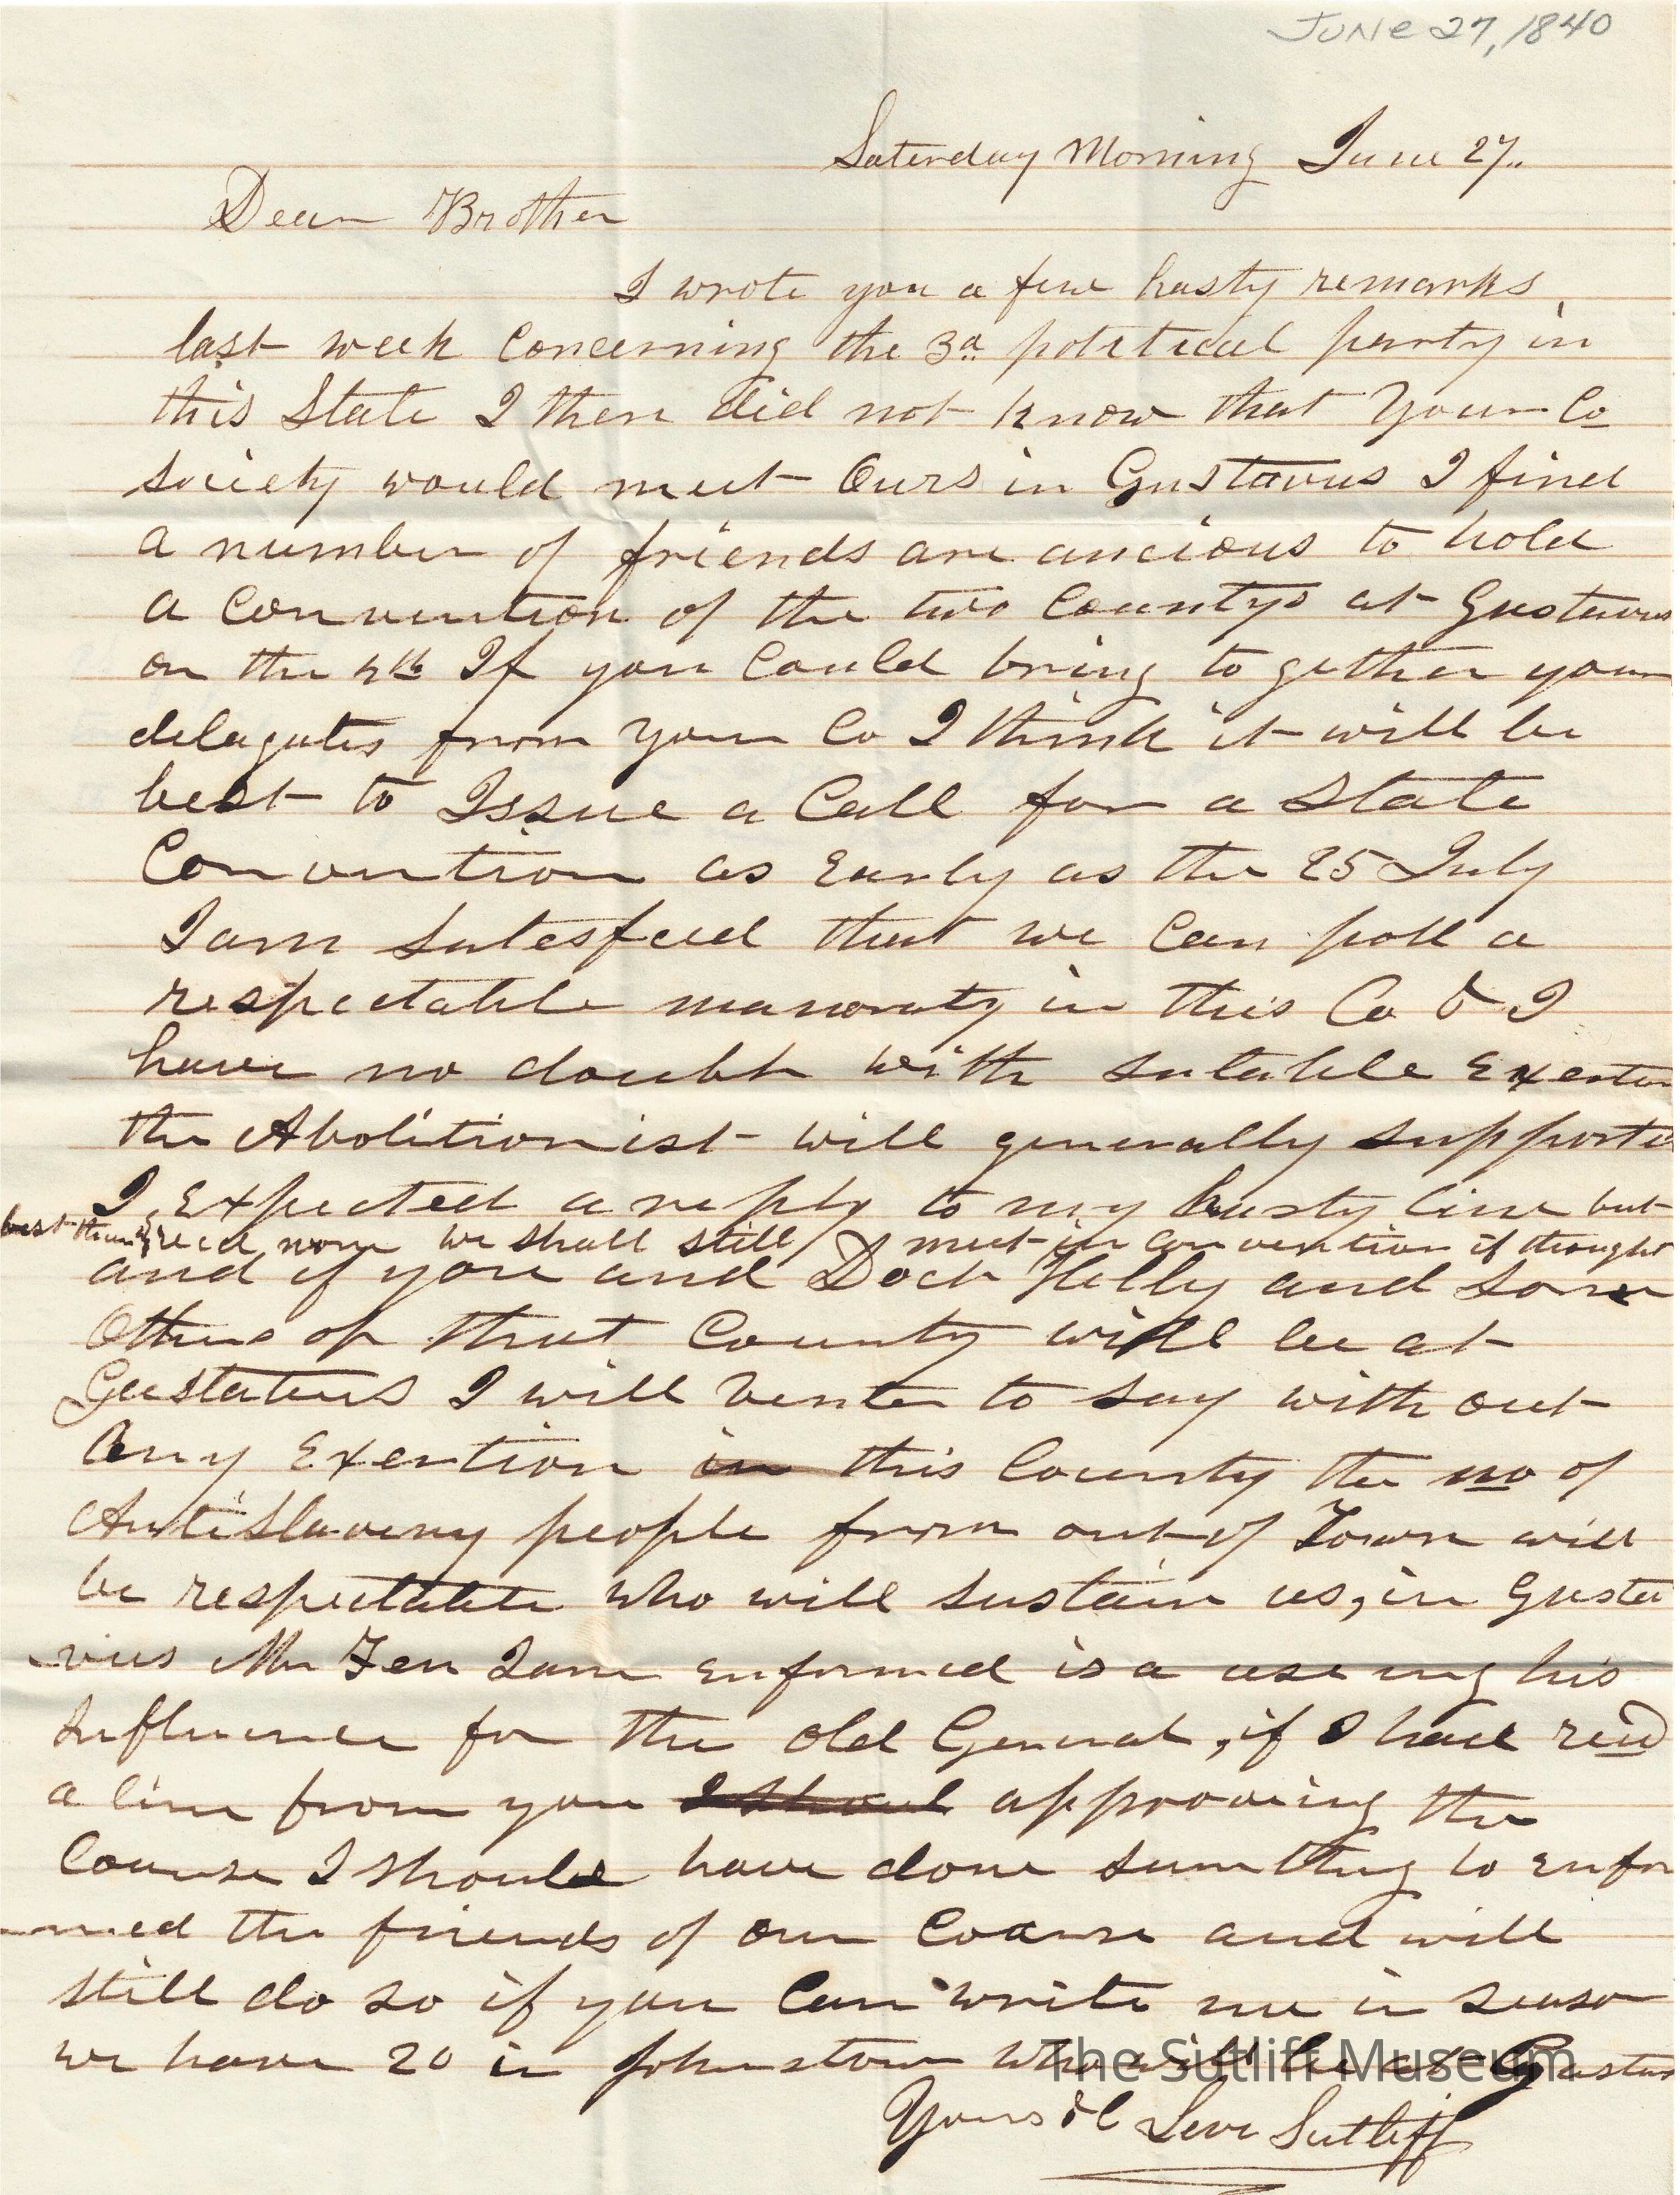 JUNE 27, 1840
Saterday Morning June 27.
Dear Brother
I wrote you a few hasty remarks
last week Concerning the 3d political party in
this State I then did not know that Your Co
Society would meet Ours in Gustavus I find
a number of friends are ancious to hold
a Convention of the two Countys at Gustavus
on the 4th If you Could bring to gether your
delagates from Your Co I think it will be
best to Issue a Call for a State
Convention as Early as the 25 July
I am Satesfied that we Can poll a
respectable in this Co & I
have no doubt with sutable
the Abolitionist will generally
I Expected a reply to my hasty line but
recd none we shall still meet in convention if thought
best
and if you and Doct and some
Others of that County will be at
Gustavus I will Venter to say with out
Any Exertion in this County the no of
AntiSlavery people from out of Town will
be respectable who will sustain us, in Gusta
vus Mr Fen I am enformed is a useing his
Influence for the Old General, if I had recd
a line from you I shoul approoving the
Course I should have done sumthing to enfor
med the friends of our Course and will
still do so if you Can write me in season
we have 20 in Johnstown who will be at Gustav
The Sutliff Museum
Yours &C Levi Sutliff